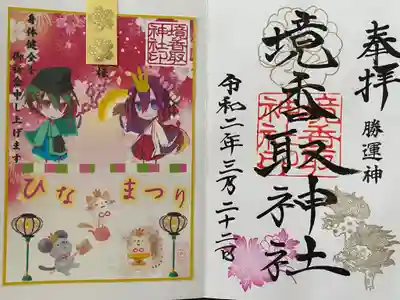 奉拝
勝運神
境香取神社
境香取
神社印
令和二年三月二十二日
境香取
神社印
様
身体健全を
御祈念申し上げます
ひなまつり